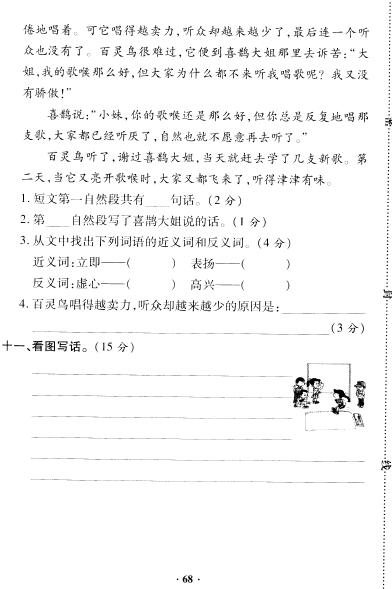 倦地唱着。可它唱得越卖力,听众却越来越少了,最后连一个听
众也没有了。百灵鸟很难过,它便到喜鹊大姐那里去诉苦:“大
姐,我的歌喉那么好,但大家为什么都不来听我唱歌呢?我又没
有骄傲!”
喜鹊说:“小妹,你的歌喉还是那么好,但你总是反复地唱那
支歌,大家都已经听厌了,自然也就不愿意再去听了。”
百灵鸟听了,谢过喜鹊大姐,当天就赶去学了几支新歌。第
二天,当它又亮开歌喉时,大家又都飞来了,听得津津有味。
1. 短文第一自然段共有____句话。(2 分)
2. 第____自然段写了喜鹊大姐说的话。(1 分)
3. 从文中找出下列词语的近义词和反义词。(4 分)
近义词:立即——( ) 表扬——( )
反义词:虚心——( ) 高兴——( )
4. 百灵鸟唱得越卖力,听众却越来越少的原因是:____________
____________(3 分)
十一、看图写话。(15 分)
线
· 68 ·